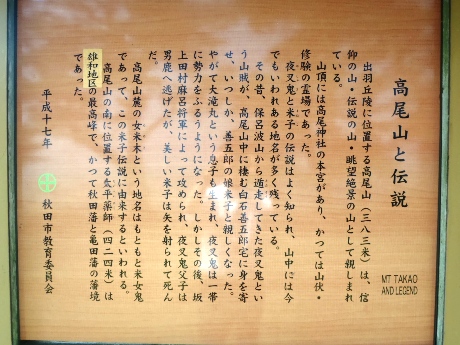 高尾山と伝説
MT TAKAO
AND LEGEND
出羽丘陵に位置する高尾山（三八三米）は、信
仰の山・伝説の山・眺望絶景の山として親しまれ
ている。
山頂には高尾神社の本宮があり、かつては山伏・
修験の霊場であった。
夜叉鬼と米子の伝説はよく知られ、山中には今
でもいわれある地名が多く残っている。
その昔、保呂波山から遁走してきた夜叉鬼とい
う山賊が、高尾山中に棲む白石善五郎宅に身を寄
せ、いつしか、善五郎の娘米子と親しくなった。
やがて大滝丸という息子も生まれ、夜叉鬼は一帯
に勢力をふるうようになった。しかしその後、坂
上田村麻呂将軍によって攻められ、夜叉鬼父子は
男鹿へ逃げたが、美しい米子は矢を射られて死ん
だ。
高尾山麓の女米木という地名はもともと米女鬼
であって、この米子伝説に由来するといわれる。
高尾山の南に位置する太平薬師（四二四米）は
雄和地区の最高峰で、かつて秋田藩と亀田藩の藩境
であった。
平成十七年
秋田市教育委員会